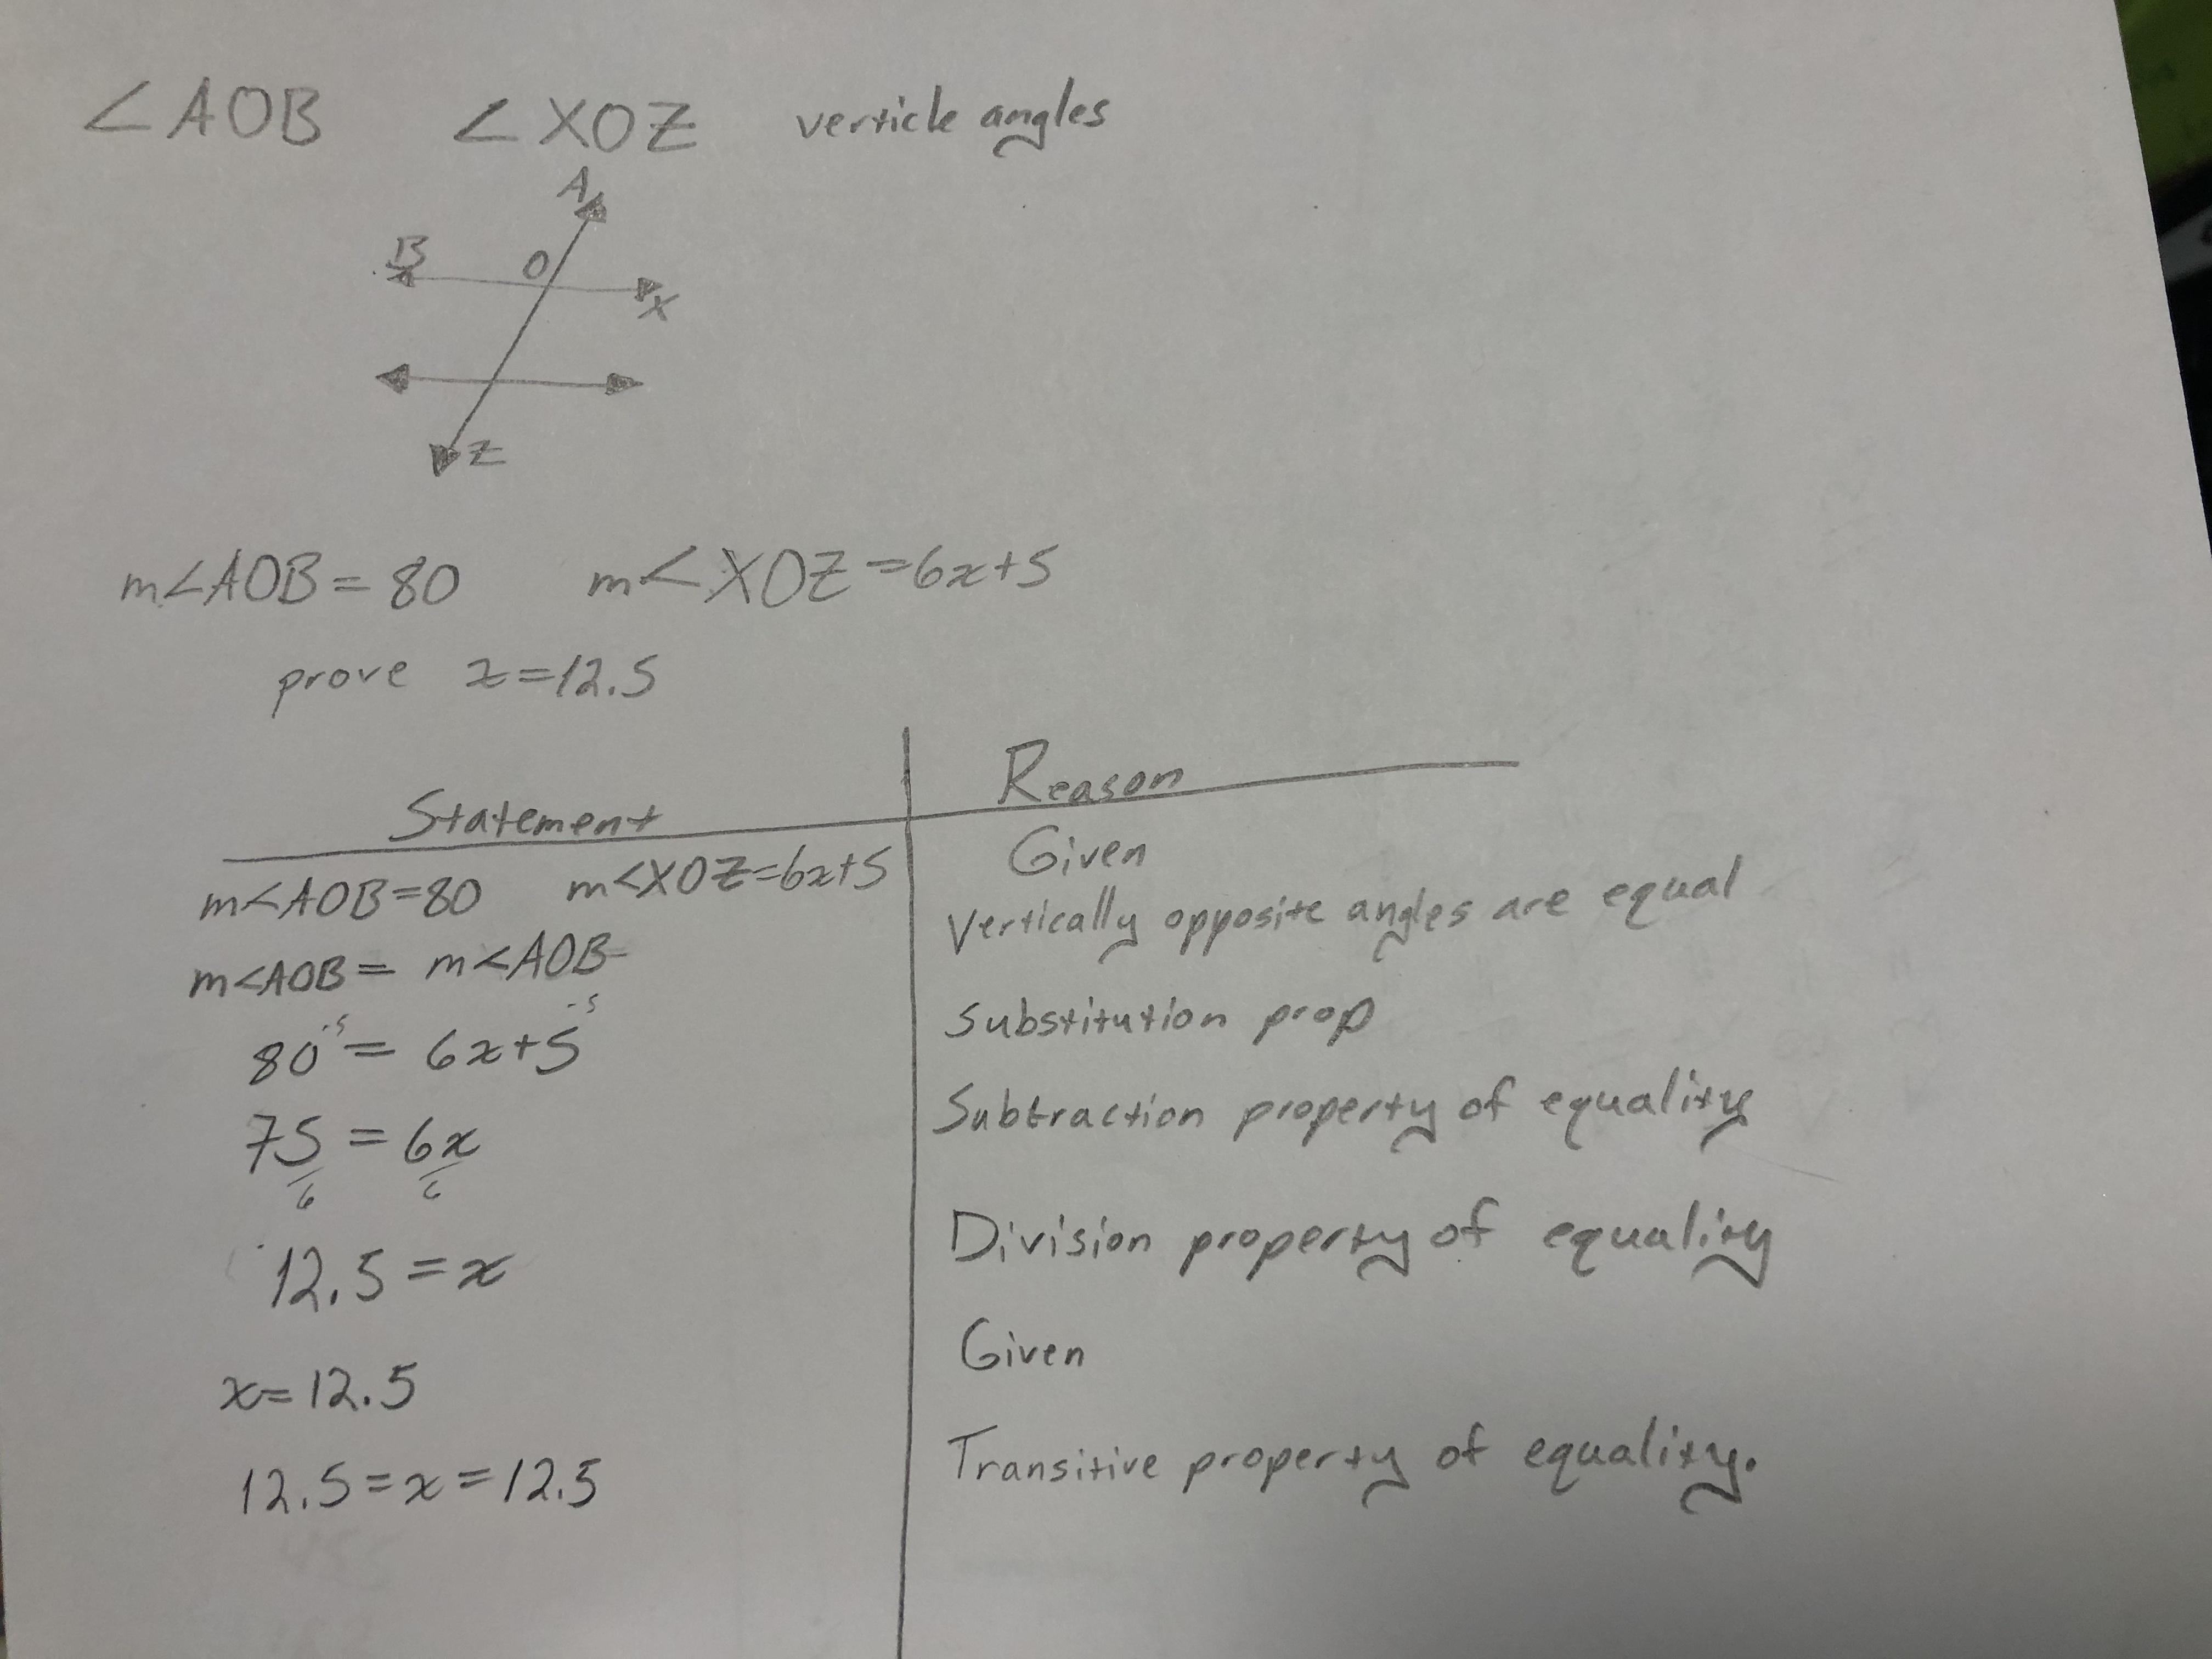 ∠AOB ∠XOZ verticle angles
A
B O
X
Z
m∠AOB = 80 m<XOZ = 6x+5
prove x=12.5
Statement Reason
m<AOB=80 m<XOZ=6x+5 Given
m<AOB = m<AOB Vertically opposite angles are equal
80⁻⁵ = 6x+5⁻⁵ Substitution prop
75/6 = 6x/6 Subtraction property of equality
12.5 = x Division property of equality
x=12.5 Given
12.5=x=12.5 Transitive property of equality.